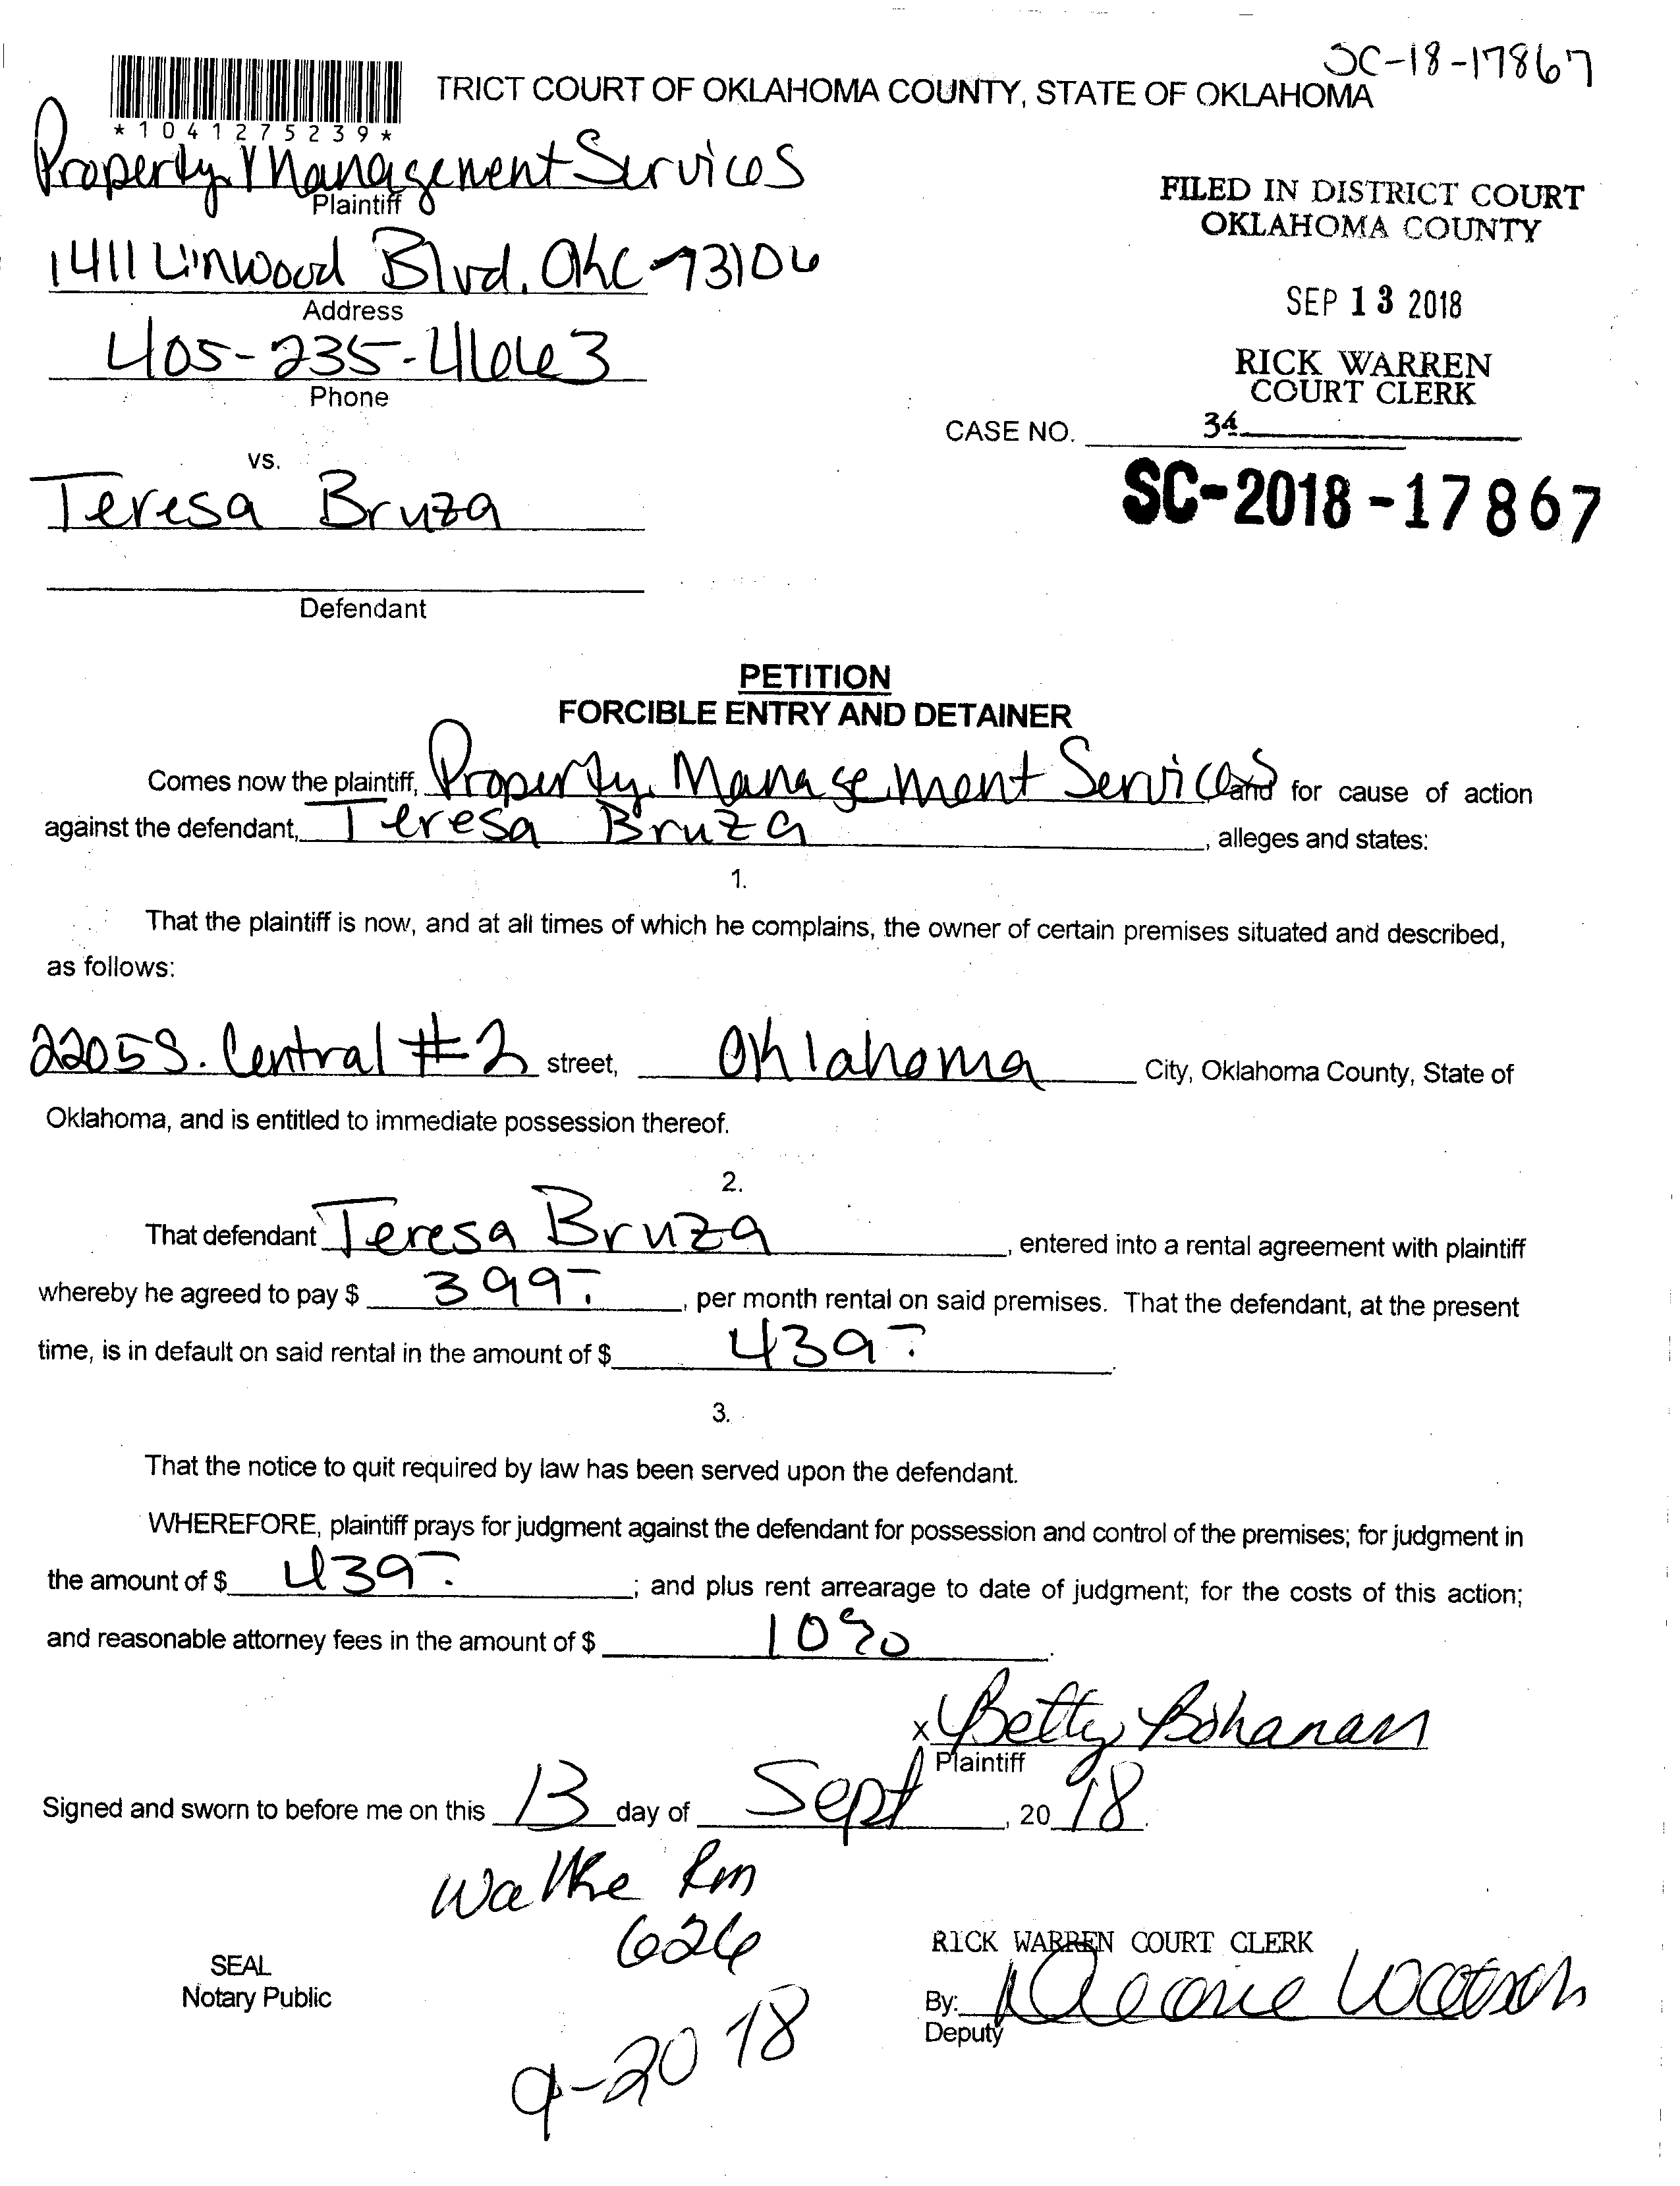 SC-18-17867
TRICT COURT OF OKLAHOMA COUNTY, STATE OF OKLAHOMA
*1041275239*
Property Management Services
Plaintiff
FILED IN DISTRICT COURT
OKLAHOMA COUNTY
1411 Linwood Blvd. OKC 73106
Address
SEP 13 2018
405-235-4663
Phone
RICK WARREN
COURT CLERK
CASE NO. 34
vs.
Teresa Bruza
SC-2018-17867
Defendant
PETITION
FORCIBLE ENTRY AND DETAINER
Comes now the plaintiff, Property Management Services and for cause of action
against the defendant, Teresa Bruza, alleges and states:
1.
That the plaintiff is now, and at all times of which he complains, the owner of certain premises situated and described,
as follows:
2205 S. Central #2 street, Oklahoma City, Oklahoma County, State of
Oklahoma, and is entitled to immediate possession thereof.
2.
That defendant Teresa Bruza, entered into a rental agreement with plaintiff
whereby he agreed to pay $ 399.-, per month rental on said premises. That the defendant, at the present
time, is in default on said rental in the amount of $ 439.-.
3.
That the notice to quit required by law has been served upon the defendant.
WHEREFORE, plaintiff prays for judgment against the defendant for possession and control of the premises; for judgment in
the amount of $ 439.-; and plus rent arrearage to date of judgment; for the costs of this action;
and reasonable attorney fees in the amount of $ 10%.
x Betty Bohanan
Plaintiff
Signed and sworn to before me on this 13 day of Sept, 20 18.
Walke Rm
626
SEAL
Notary Public
RICK WARREN COURT CLERK
By: Watson
Deputy
9-20 18